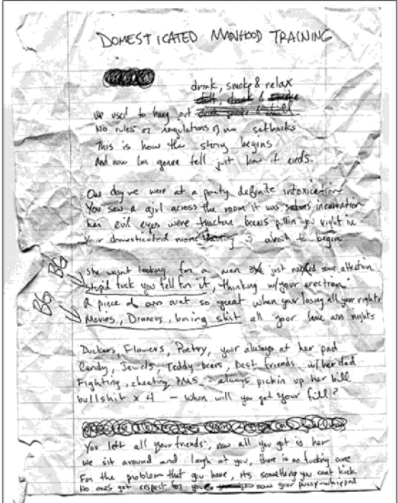 DOMESTICATED MANHOOD TRAINING
drink, smoke & relax
We used to hang out
No rules or regulations of no setbacks
This is how the story begins
And now Im gonna tell just how it ends.
One day we were at a party definite intoxication
You saw a girl across the room it was satans incarnation
her evil eyes were tractor beams pullin you right in
Your domesticated manhood training is about to begin
BG BG
She wasnt looking for a man just needed some attention
stupid fuck you fell for it, thinking w/your erection
A piece of ass aint so great when your losing all your rights
Movies, Dinners, boring shit all your lame ass nights
Duckers, Flowers, Poetry, your always at her pad
Candy, Jewels, Teddy bears, best friends w/her dad
Fighting, cheating, PMS, always pickin up her bill
bullshit x 4 - When will you get your fill?
You left all your friends, now all you got is her
We sit around and laugh at you, there is no fucking cure
For the problem that you have, its something you cant kick
No ones got respect for you now your pussy-whipped